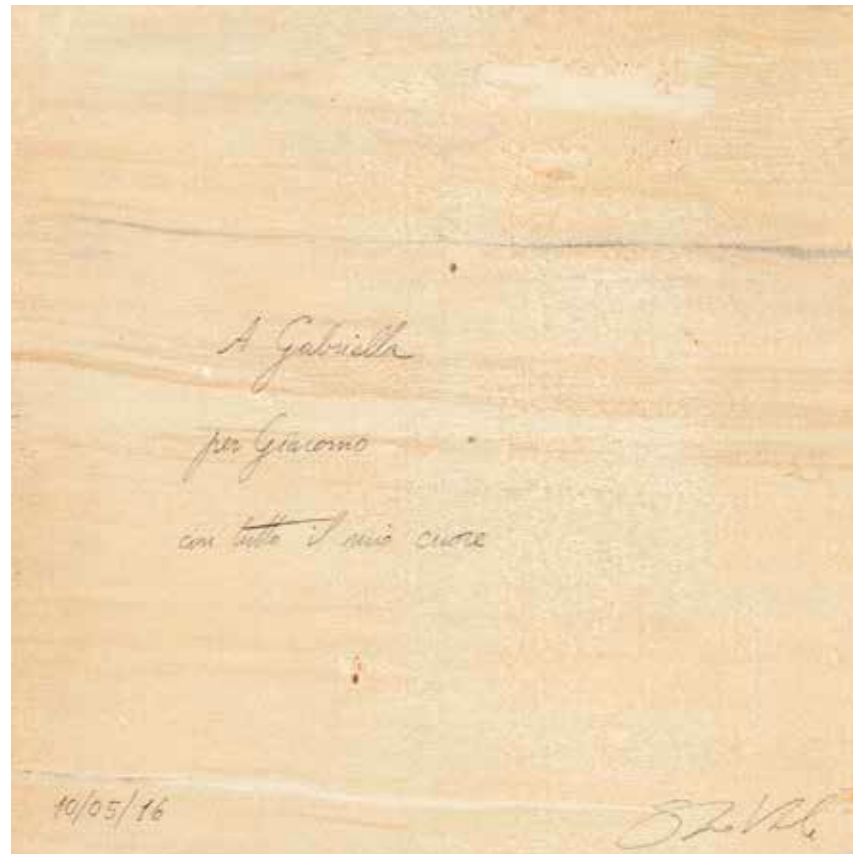 A Gabriella
per Giacomo
con tutto il mio cuore
10/05/16